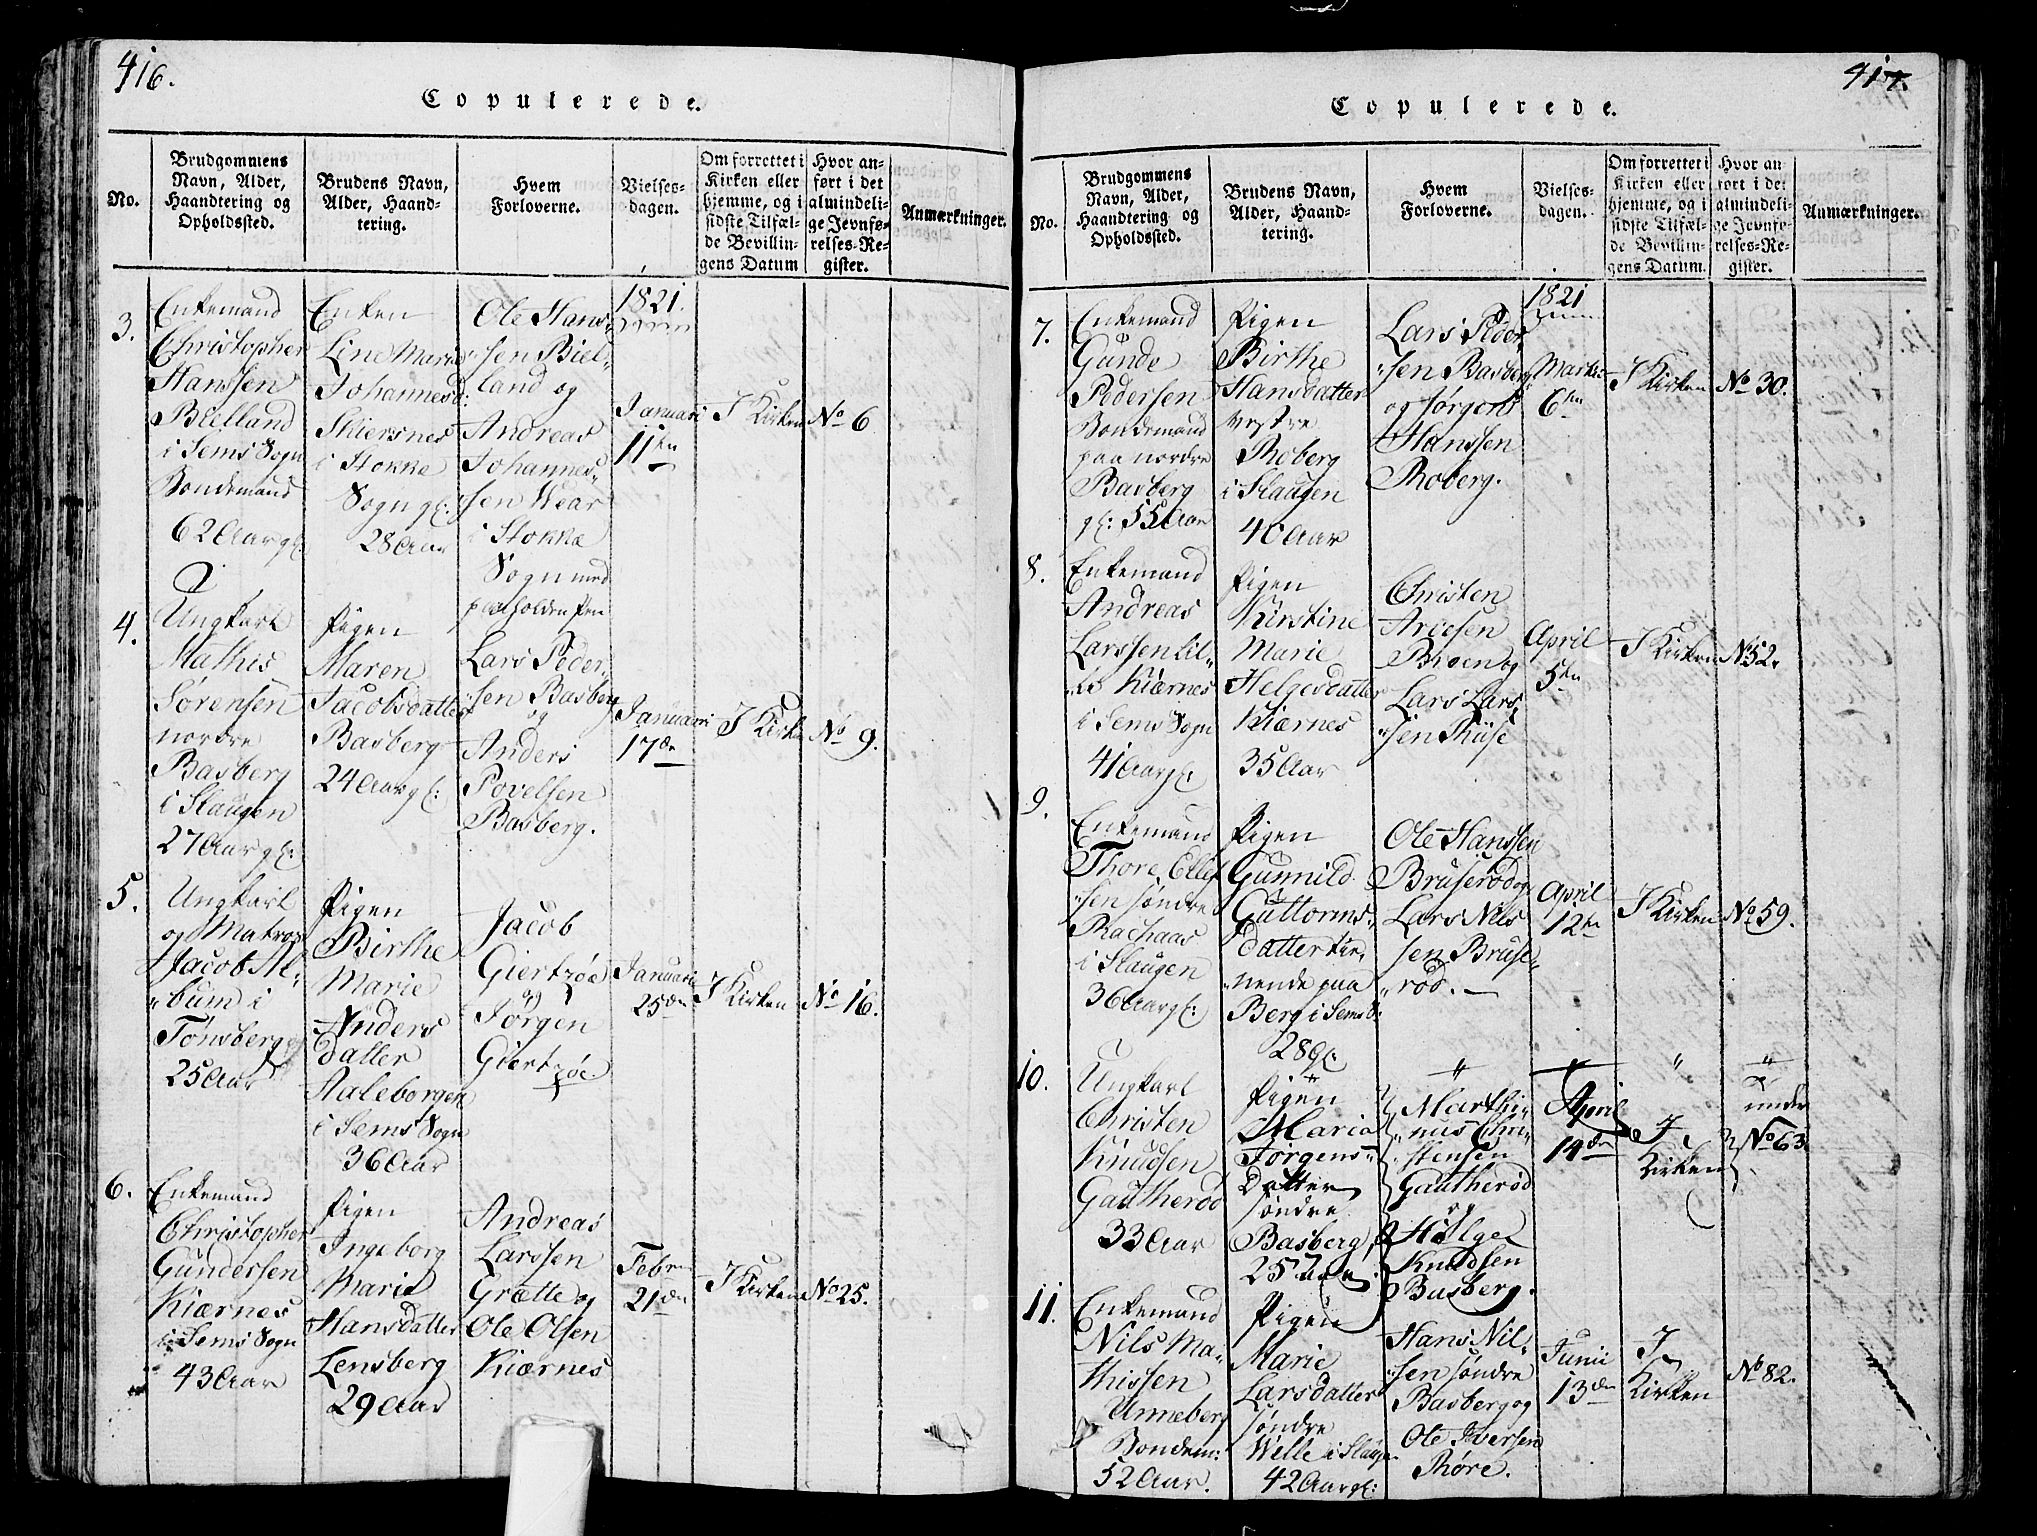 416.
Copulerede.
No.
Brudgommens
Navn, Alder,
Haandtering og
Opholdssted.
Brudens Navn,
Alder, Haand-
tering.
Hvem
Forloverne.
Vielses-
dagen.
Om forrettet i
Kirken eller
hjemme, og i
sidste Tilfæl-
de Bevillin-
gens Datum
Hvor an-
ført i det
almindeli-
ge Jevnfø-
relses-Re-
gister.
Anmærkninger.
3.
Enkemand
Christopher
Hanssen
Bielland
i Sems Sogn
Bondemand
62 Aar gl:
Enken
Line Marie
Johannesd:
Skiersnes
i Stokke
Sogn gl:
28 Aar
Ole Hans-
sen Biel-
land og
Andreas
Johannes-
sen Wear
i Stokke
Sogn med
1821.
Januari
11te
I Kirken
No 6
4.
Ungkarl
Mathis
Sørensen
nordre
Basberg
i Slaugen
27 Aar gl:
Pigen
Maren
Jacobsdatter
Basberg
24 Aar gl:
Lars Peder-
sen Basberg
og
Anders
Povelsen
Basberg.
Januari
17de
I Kirken
No 9.
5.
Ungkarl
og Matros
Jacob Al-
bum i
Tønsberg
25 Aar
Pigen
Birthe
Marie
Anders
datter
Aaleborgen
i Sems Sogn
36 Aar
Jacob
Giertzøe
og
Jørgen
Giertzøe.
Januari
25de
I Kirken
No 16.
6.
Enkemand
Christopher
Gundersen
Kiærnes
i Sems Sogn
43 Aar
Pigen
Ingeborg
Marie
Hansdatter
Lensberg
29 Aar
Andreas
Larssen
Grætte og
Ole Olsen
Kiærnes
Febr
21de
I Kirken
No 25.
417.
Copulerede.
No.
Brudgommens
Navn, Alder,
Haandtering og
Opholdssted.
Brudens Navn,
Alder, Haand-
tering.
Hvem
Forloverne.
Vielses-
dagen.
Om forrettet i
Kirken eller
hjemme, og i
sidste Tilfæl-
de Bevillin-
gens Datum.
Hvor an
ført i det
almindeli-
ge Jevnfø-
relses-Re-
gister.
Anmærkninger.
7.
Enkemand
Gunde
Pedersen
Bondemand
paa nordre
Basberg
gl: 55 Aar
Pigen
Birthe
Hansdatter
vestre
Roberg
i Slaugen
40 Aar
Lars Peder-
sen Basberg
og Jørgen
Hanssen
Roberg.
1821
Marti
6te
I Kirken
No 30.
8.
Enkemand
Andreas
Larssen lil-
le Kiærnes
i Sems Sogn
41 Aar gl:
Pigen
Kirstine
Marie
Helgesdatter
Kiærnes
35 Aar
Christen
Ariesen
Broen og
Lars Lars-
sen Riise
April
5te
I Kirken
No 52.
9.
Enkemand
Thore Ellef
sen søndre
Rachaas
i Slaugen
36 Aar gl:
Pigen
Gunnild
Guttorms-
datter tie-
nende paa
Berg i Sems S:
28 gl:
Ole Hanssen
Bruserød og
Lars Nils
sen Bruse-
rød.
April
12te
I Kirken
No 59.
10.
Ungkarl
Christen
Knudsen
Gautherød
33 Aar
Pigen
Maria
Jørgens-
Datter
søndre
Basberg,
25 Aar
Marthi-
nus Chri-
stensen
Gautherød
og
Helge
Knudsen
Basberg.
April
14de
I
Kirken
under
No 63
11.
Enkemand
Nils Ma-
thissen
Unneberg
Bondem:
52 Aar.
Pigen
Marie
Larsdatter
søndre
Welle i Slaugen
42 Aar gl:
Hans Nil-
sen søndre
Basberg og
Ole Iversen
Røre.
Junii
13de
I
Kirken
No 82.